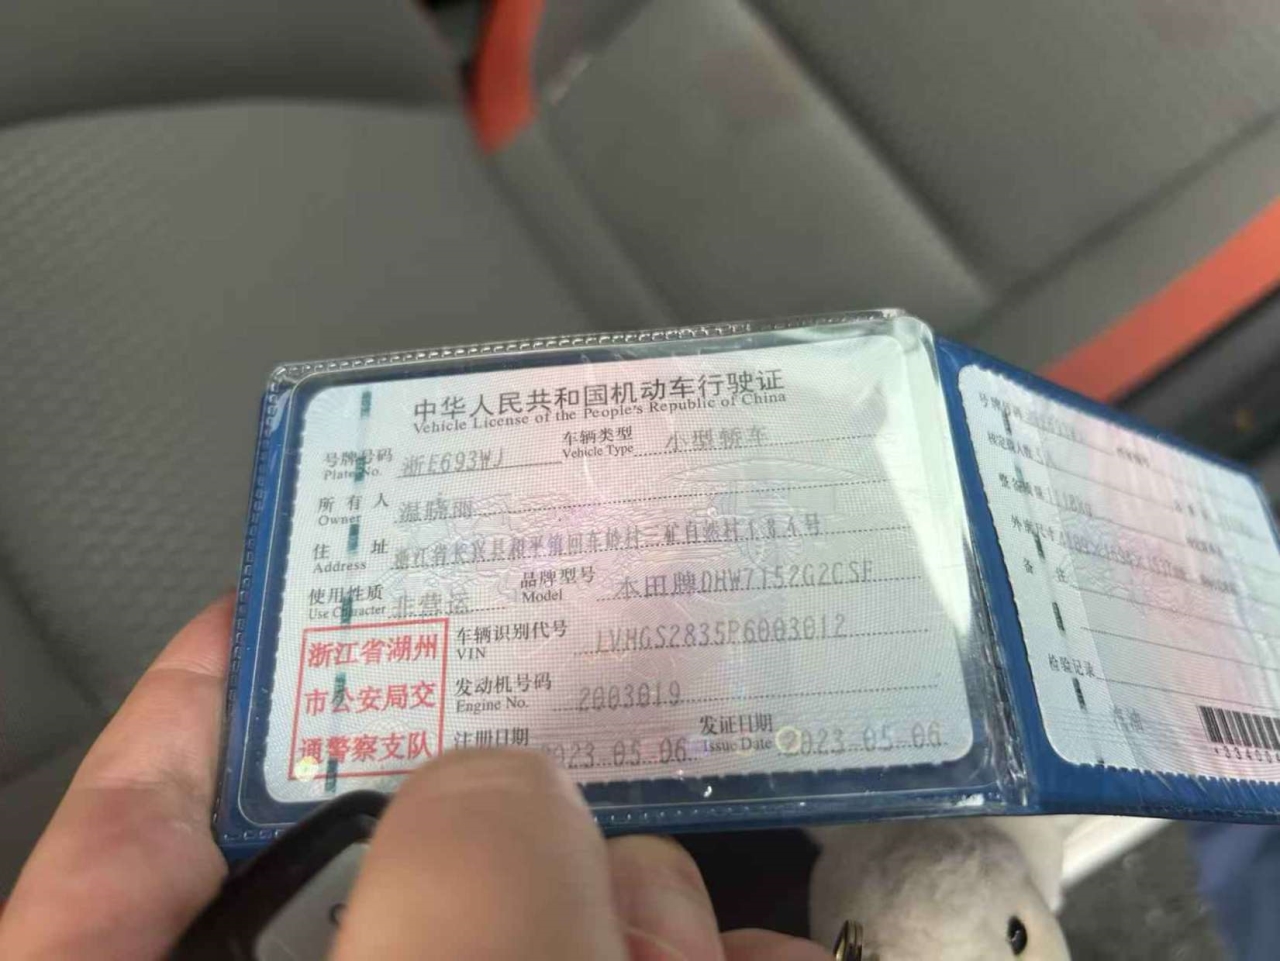 中华人民共和国机动车行驶证
Vehicle License of the People's Republic of China
号牌号码 浙E693WJ 车辆类型 小型轿车
Plate No. Vehicle Type
所有人 温晓丽
Owner
住址 浙江省长兴县和平镇回车岭村三矿自然村184号
Address
使用性质 非营运 品牌型号 本田牌DHW7152G2CSF
Use Character Model
浙江省湖州
市公安局交
通警察支队
车辆识别代号 LVHGS2835P6003012
VIN
发动机号码 2003019
Engine No.
注册日期 2023.05.06 发证日期 2023.05.06
Issue Date
号牌号码
核定载人数 5
整备质量
外廓尺寸
备注
检验记录
汽油